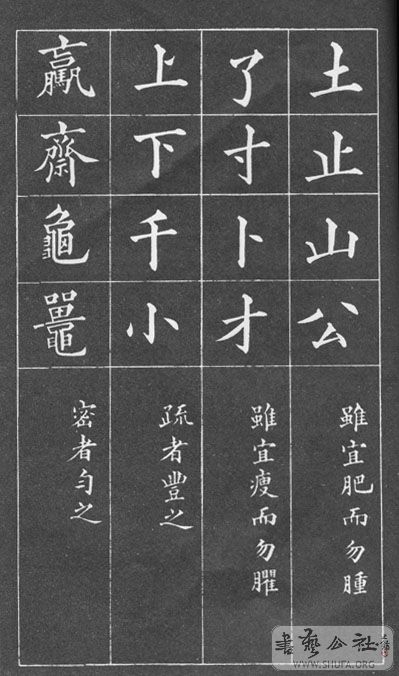 土止山公
雖宜肥而勿腫
了寸卜才
雖宜瘦而勿臞
上下千小
疏者豐之
齋龜
密者勻之
書藝公社
WWW.SHUFA.ORG